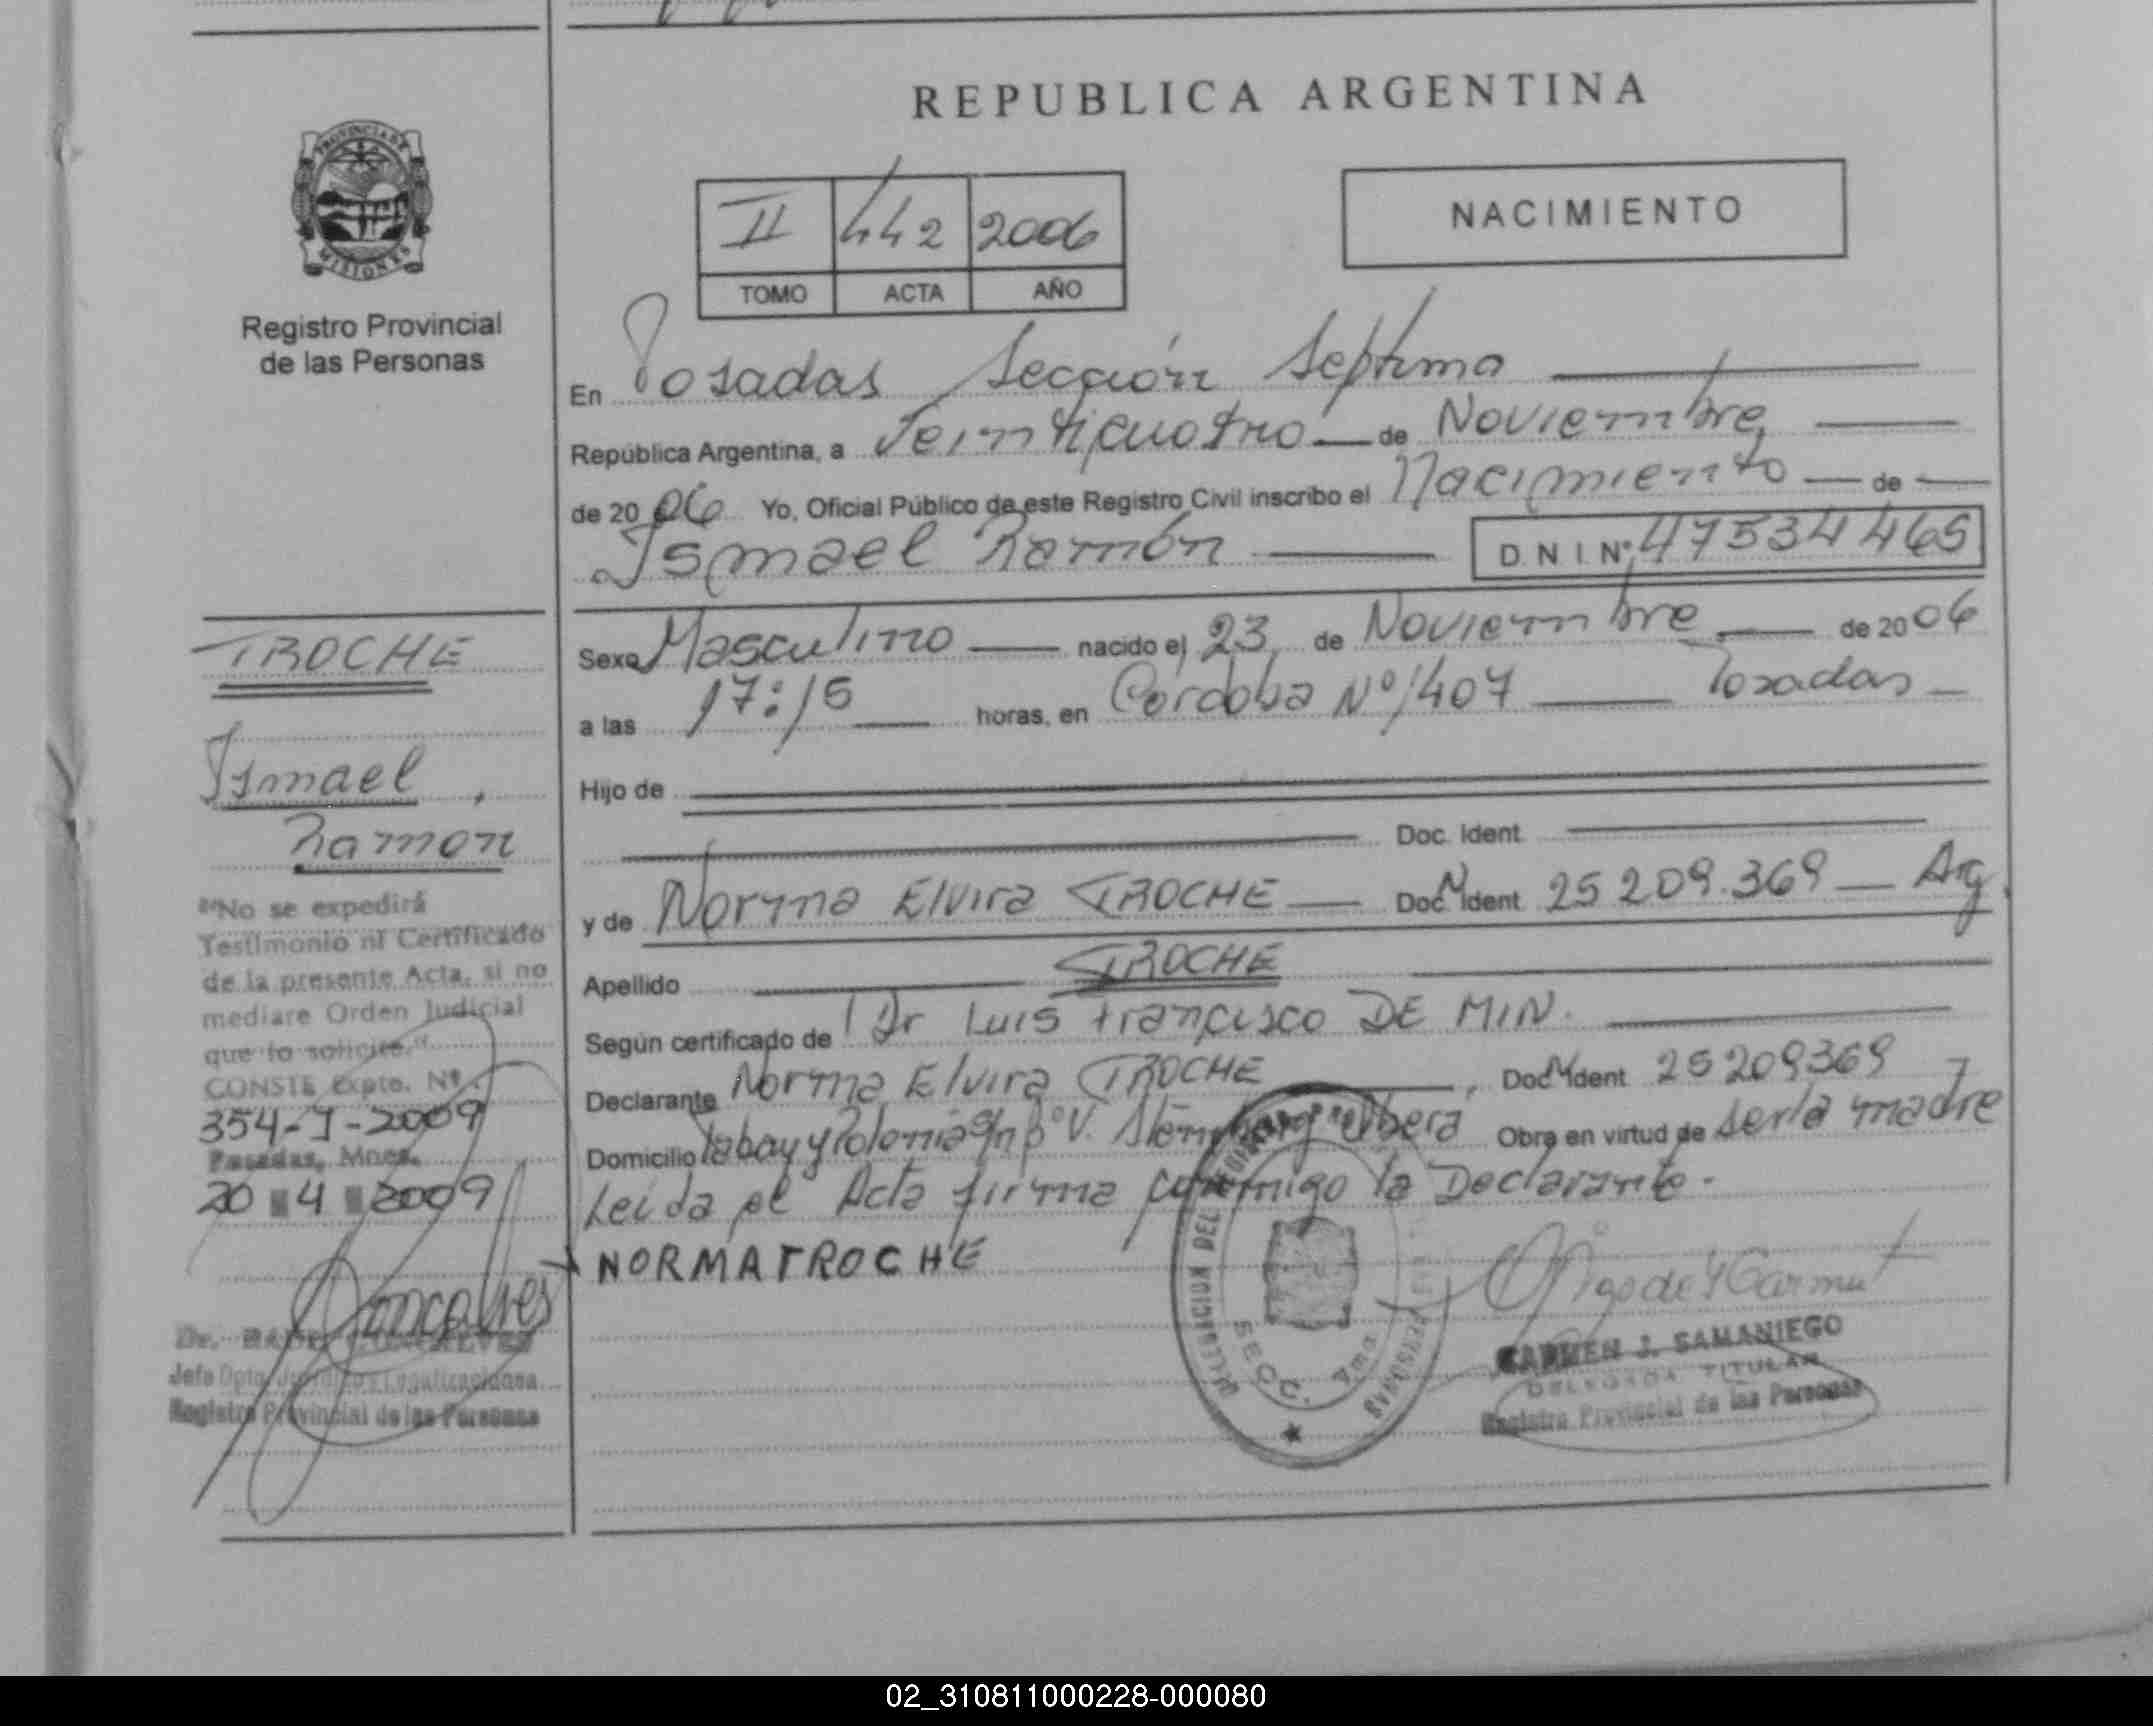 REPUBLICA ARGENTINA
PROVINCIA DE
MISIONES
Registro Provincial
de las Personas
II 442 2006
TOMO ACTA AÑO
NACIMIENTO
En Posadas Sección Septima
República Argentina, a Veinticuatro de Noviembre
de 2006 Yo, Oficial Público de este Registro Civil inscribo el Nacimiento de
Ismael Ramón D.N.I.Nº 47534465
Sexo Masculino nacido el 23 de Noviembre de 2006
a las 17:15 horas, en Córdoba Nº 1407 Posadas
Hijo de
Doc. Ident
y de Norma Elvira TROCHE Doc. N Ident 25 209.369 Arg.
Apellido TROCHE
Según certificado de Dr Luis Francisco DE MIN.
Declarante Norma Elvira TROCHE, Doc. N Ident 25209369
Domicilio Tabay y Polonia Obra en virtud de ser la madre
Leida el Acta firma conmigo la Declarante.-
NORMA TROCHE
TROCHE
Ismael,
Ramon
"No se expedirá
Testimonio ni Certificado
de la presente Acta, si no
mediare Orden Judicial
que lo solicite."
CONSTE Expte. Nº
354-J-2009
Posadas, Mnes.
20 4 2009
Goncalves
Jefe Dpto.
Registro Provincial de las Personas
DELEGACION DEL
SECC. 7ma
PERSONAS
CARMEN J. SAMANIEGO
DELEGADA TITULAR
Registro Provincial de las Personas
02_310811000228-000080